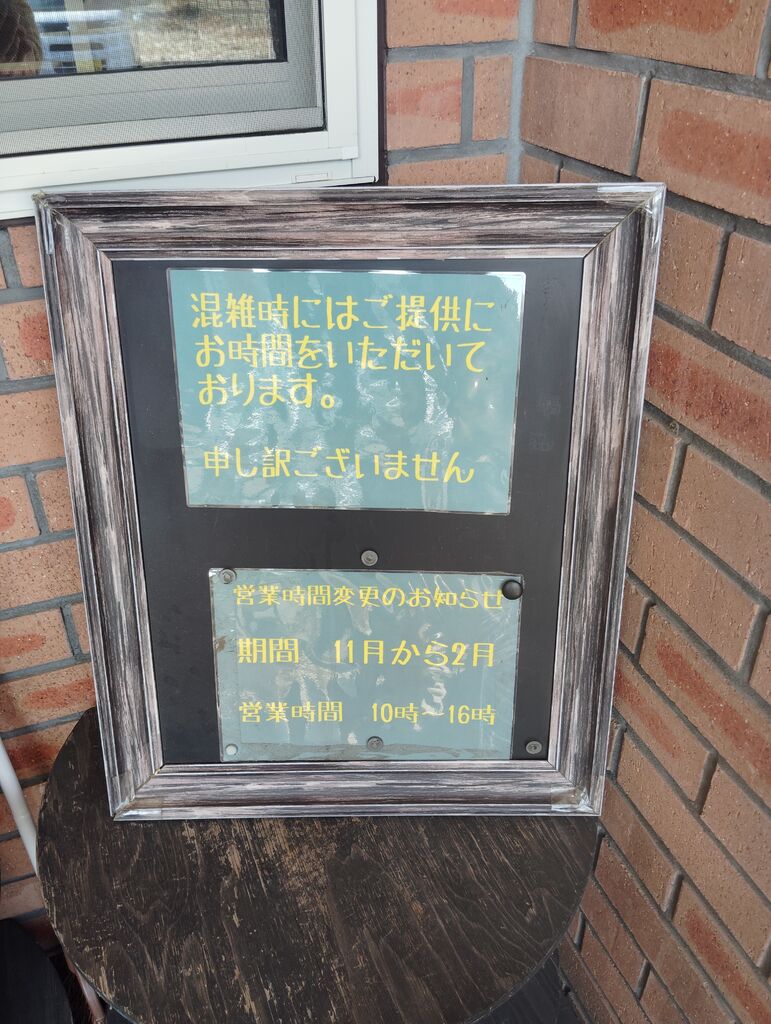 混雑時にはご提供に
お時間をいただいて
おります。
申し訳ございません
営業時間変更のお知らせ
期間　11月から2月
営業時間　10時～16時